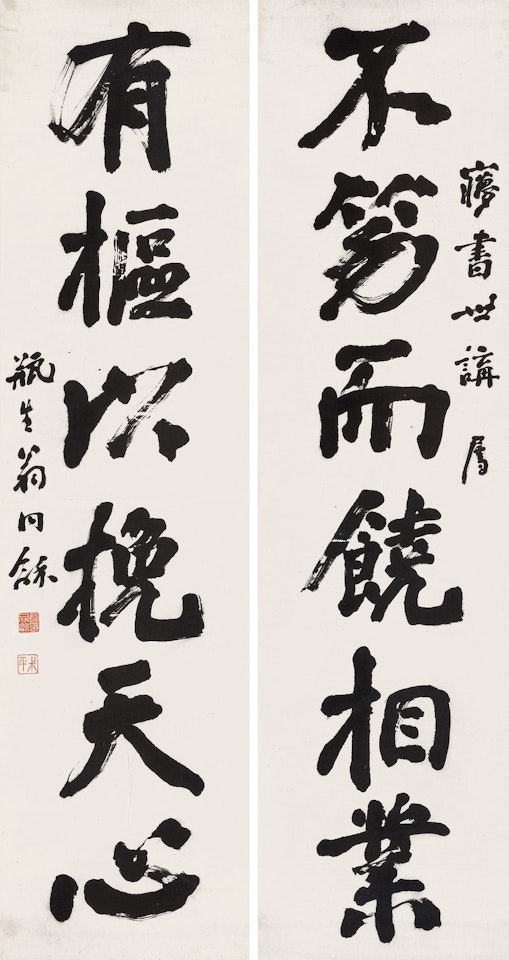 㝱書世講屬
不笏而饒相業
有樞以挽天心
瓶生翁同龢